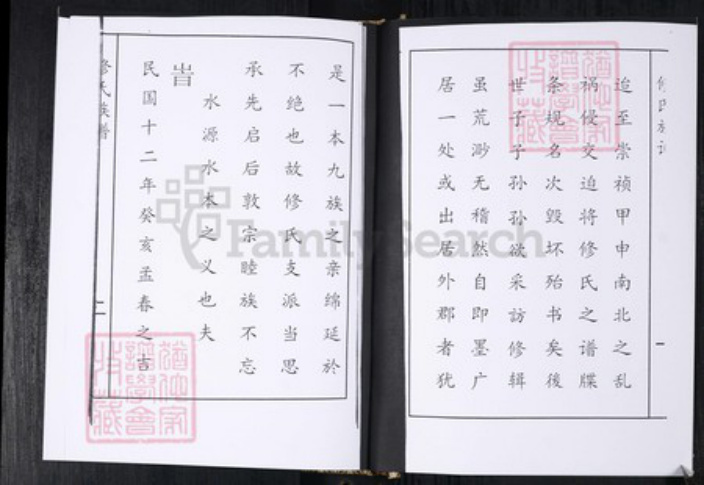 迨至崇祯甲申南北之乱
祸侵交迫将修氏之谱牒
条规名次毁坏殆书矣後
世子子孙孙欲采訪修辑
虽荒渺无稽然自即墨广
居一处或出居外郡者犹
是一本九族之亲绵延於
不绝也故修氏支派当思
承先启后敦宗睦族不忘
水源水本之义也夫
旹
民国十二年癸亥孟春之吉
修氏族谱
二
一
FamilySearch